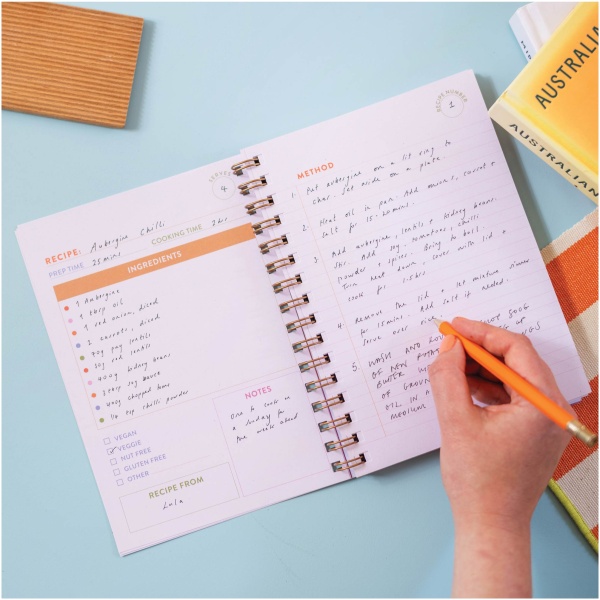 SERVES
4
RECIPE: Aubergine Chilli
PREP TIME 25mins COOKING TIME 2hrs
INGREDIENTS
1 Aubergine
1 tbsp oil
1 red onion, diced
2 carrots, diced
70g puy lentils
50g red lentils
400g kidney beans
2 tbsp soy sauce
400g chopped toms
1/4 tsp chilli powder
VEGAN
VEGGIE
NUT FREE
GLUTEN FREE
OTHER
RECIPE FROM
Lula
NOTES
One to cook on
a Sunday for
the week ahead
RECIPE NUMBER
1
METHOD
1. Put aubergine on a lit ring to
char. Set aside on a plate.
2. Heat oil in pan. Add onions, carrot +
salt for 15-20mins.
3. Add aubergine, lentils + kidney beans.
Stir. Add soy, tomatoes, chilli
powder + spices. Bring to boil.
Turn heat down, cover with lid +
cook for 1.5hrs
4. Remove the lid + let mixture simmer
for 15mins. Add salt if needed.
Serve over rice.
5. WASH AND NOT 500G
OF NEW
BUTTER
OF GROUN
OIL IN A
MEDIUM
AUSTRALIA
AUSTRALIAN